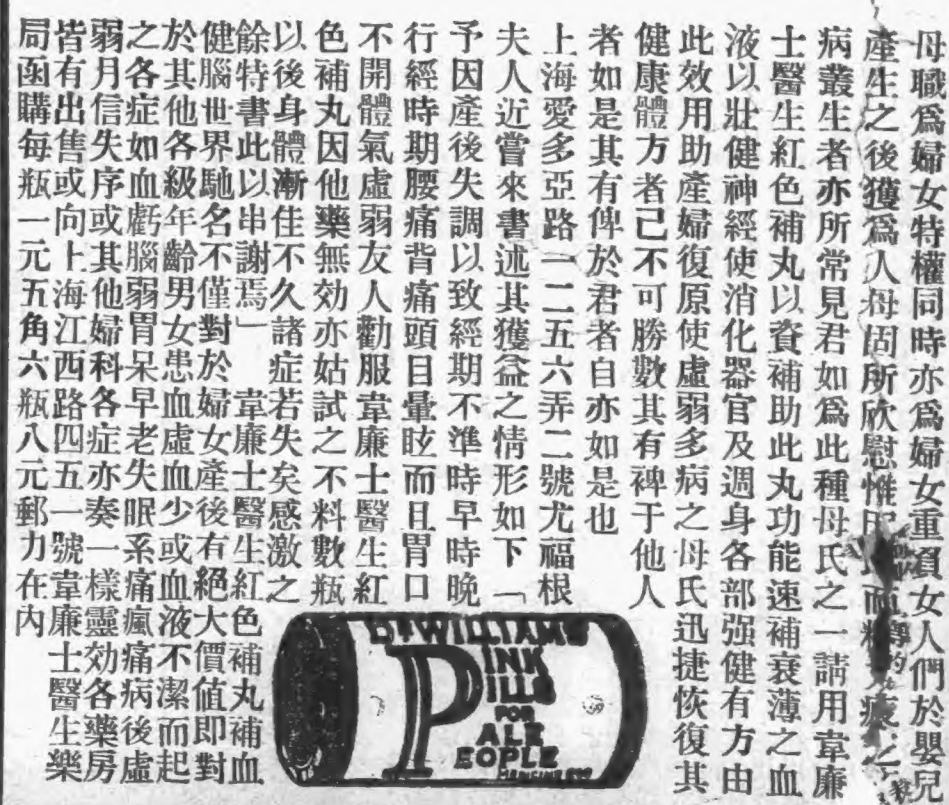 母職爲婦女特權同時亦爲婦女重負女人們於嬰兒
產生之後獲爲人母固所欣慰惟 而 疲
病叢生者亦所常見君如爲此種母氏之一請用韋廉
士醫生紅色補丸以資補助此丸功能速補衰薄之血
液以壯健神經使消化器官及週身各部强健有方由
此效用助產婦復原使虛弱多病之母氏迅捷恢復其
健康體方者已不可勝數其有裨于他人
者如是其有俾於君者自亦如是也
上海愛多亞路一二五六弄二號尤福根
夫人近嘗來書述其獲益之情形如下「
予因產後失調以致經期不準時早時晚
行經時期腰痛背痛頭目暈眩而且胃口
不開體氣虛弱友人勸服韋廉士醫生紅
色補丸因他藥無効亦姑試之不料數瓶
以後身體漸佳不久諸症若失矣感激之
餘特書此以串謝焉」　韋廉士醫生紅色補丸補血
健腦世界馳名不僅對於婦女產後有絕大價值即對
於其他各級年齡男女患血虛血少或血液不潔而起
之各症如血虧腦弱胃呆早老失眠系痛瘋痛病後虛
弱月信失序或其他婦科各症亦奏一樣靈効各藥房
皆有出售或向上海江西路四五一號韋廉士醫生樂
局函購每瓶一元五角六瓶八元郵力在內
Dr WILLIAMS
PINK
PILLS
FOR
PALE
PEOPLE